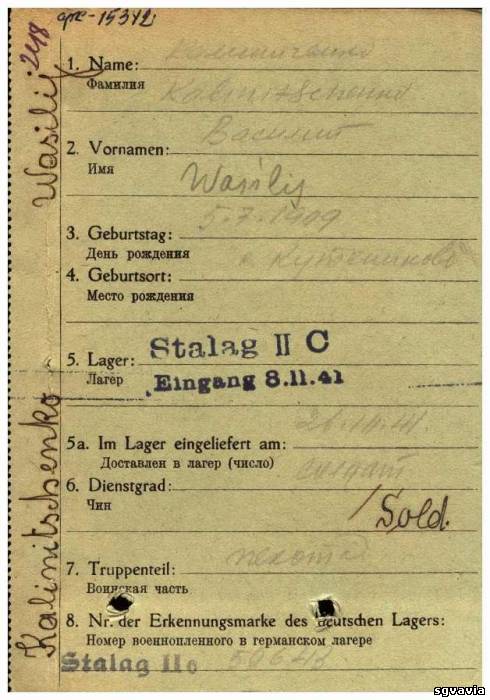 фж-15342
248
Kalinitschenko Wasilij
1. Name:
Фамилия
Kalinitschenko
2. Vornamen: Василий
Имя
Wasilij
5.7.1909
3. Geburtstag:
День рождения
4. Geburtsort:
Место рождения
Stalag II C
5. Lager:
Лагер
Eingang 8.11.41
5a. Im Lager eingeliefert am:
Доставлен в лагер (число)
солдат
6. Dienstgrad:
Чин
Sold.
пехота
7. Truppenteil:
Воинская часть
8. Nr. der Erkennungsmarke des deutschen Lagers:
Номер военнопленного в германском лагере
Stalag IIc
sgvavia